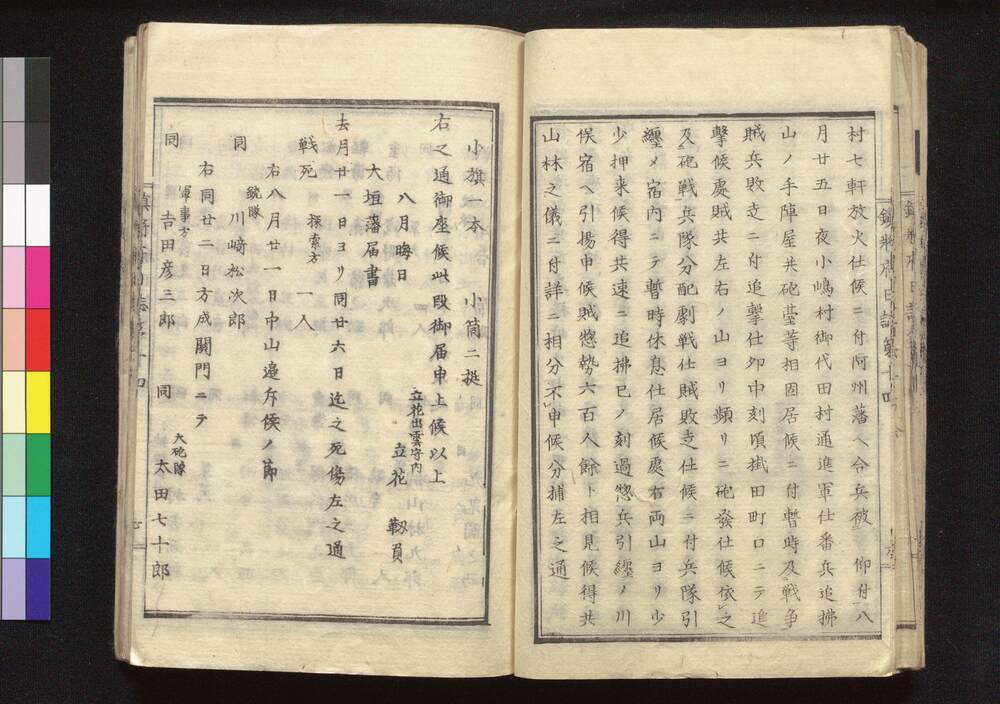 村七軒放火仕候ニ付阿州藩ヘ令兵被 仰付八
月廿五日夜小嶋村御代田村通進軍仕番兵追拂
山ノ手陣屋共砲䑓等相固居候ニ付暫時及戦争
賊兵敗走ニ付追撃仕夘中刻頃掛田町口ニテ追
撃候處賊共左右ノ山ヨリ頻リニ砲發仕候依之
及砲戦兵隊分配劇戦仕賊敗走仕候ニ付兵隊引
纏メ宿内ニテ暫時休息仕居候處右両山ヨリ少
少押来候得共速ニ追拂巳ノ刻過惣兵引纏ノ川
候宿ヘ引揚申候賊惣勢六百人餘ト相見候得共
山林之儀ニ付詳ニ相分不申候分捕左之通
鎮将府日誌第十四
小旗一本 小筒二挺
右之通御座候此段御届申上候以上
八月晦日 立花出雲守内 立花 靱負
大垣藩届書
去月廿一日ヨリ同廿六日迄之死傷左之通
戦死 探索方 一人
右八月廿一日中山邉斥候ノ節
同 銃隊 川﨑松次郎
右同廿二日方成關門ニテ
同 軍事方 吉田彦三郎 同 大砲隊 太田七十郎